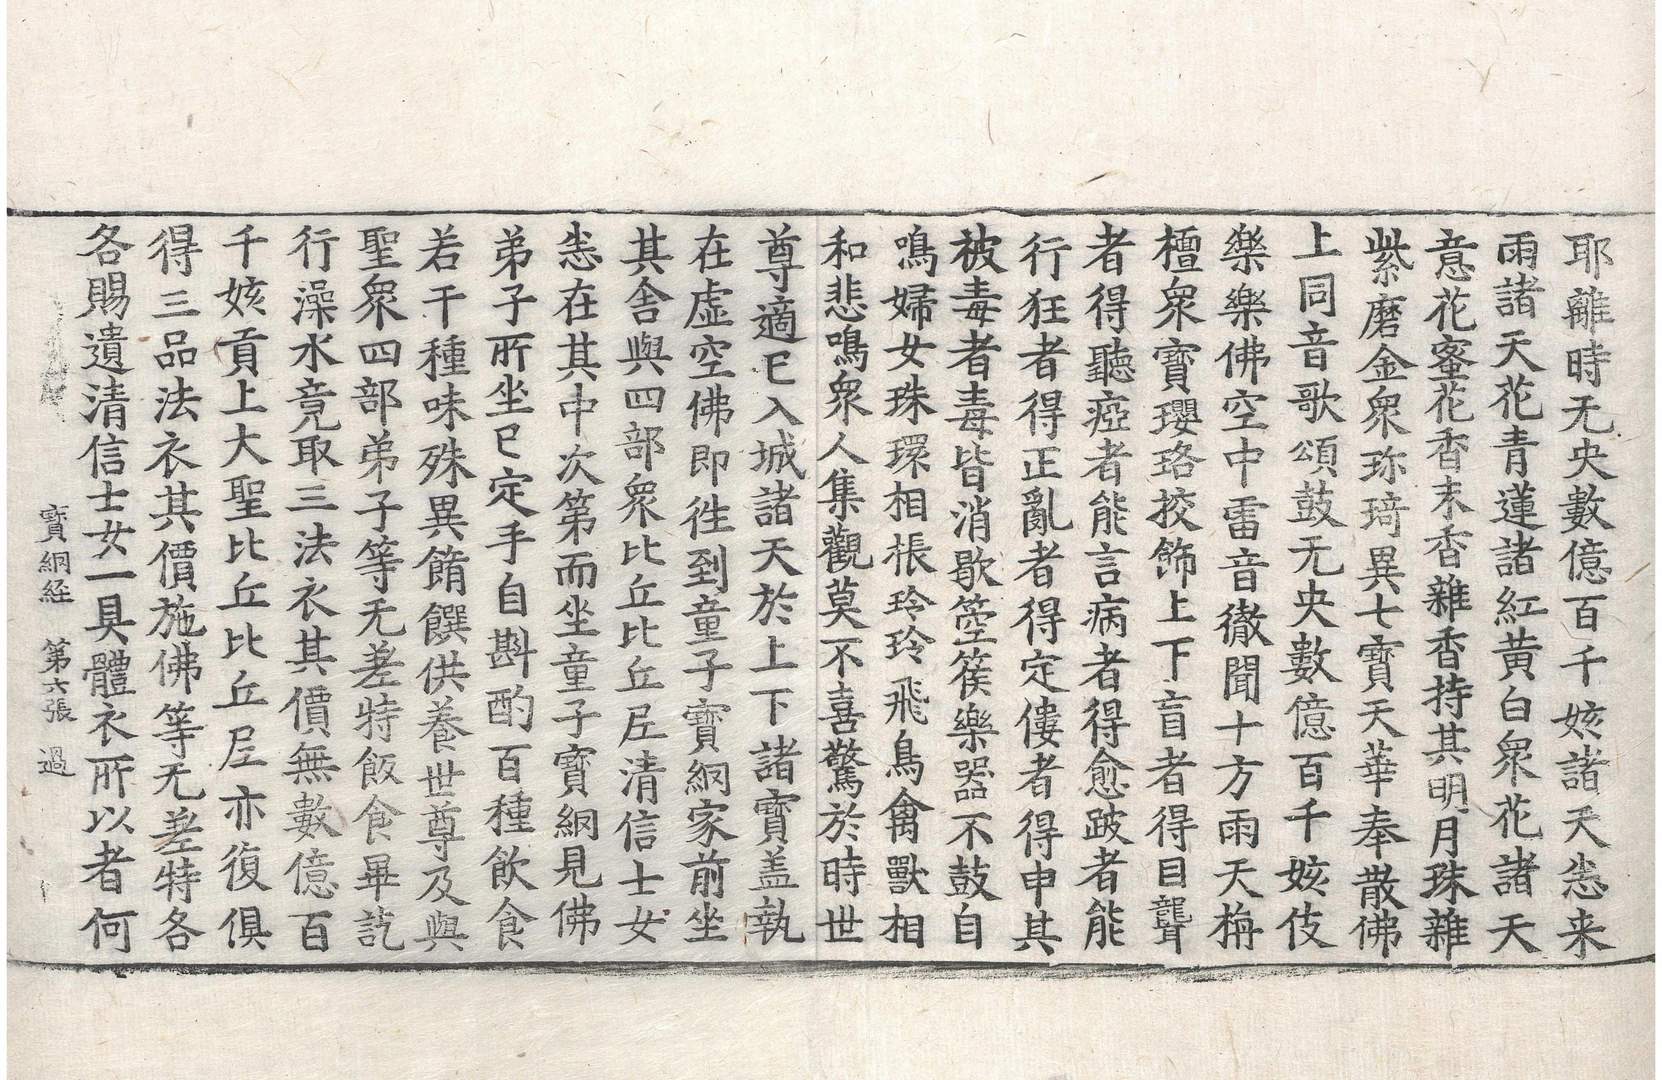 耶離時无央數億百千姟諸天悉来
雨諸天花青蓮諸紅黃白衆花諸天
意花蜜花香末香雜香持其明月珠雜
紫磨金衆珎琦異七寶天華奉散佛
上同音歌頌鼓无央數億百千姟伎
樂樂佛空中雷音徹聞十方雨天栴
檀衆寶瓔珞挍飾上下盲者得目聾
者得聽瘂者能言病者得愈跛者能
行狂者得正亂者得定僂者得申其
被毒者毒皆消歇箜篌樂器不鼓自
鳴婦女珠環相棖玲玲飛鳥禽獸相
和悲鳴衆人集觀莫不喜驚於時世
尊適已入城諸天於上下諸寶盖執
在虛空佛即徃到童子寶網家前坐
其舍與四部衆比丘比丘尼清信士女
悉在其中次第而坐童子寶網見佛
弟子所坐已定手自斟酌百種飲食
若干種味殊異餚饌供養世尊及與
聖衆四部弟子等无差特飯食畢訖
行澡水竟取三法衣其價無數億百
千姟貢上大聖比丘比丘尼亦復俱
得三品法衣其價施佛等无差特各
各賜遺清信士女一具體衣所以者何
寶網経 第六張 過